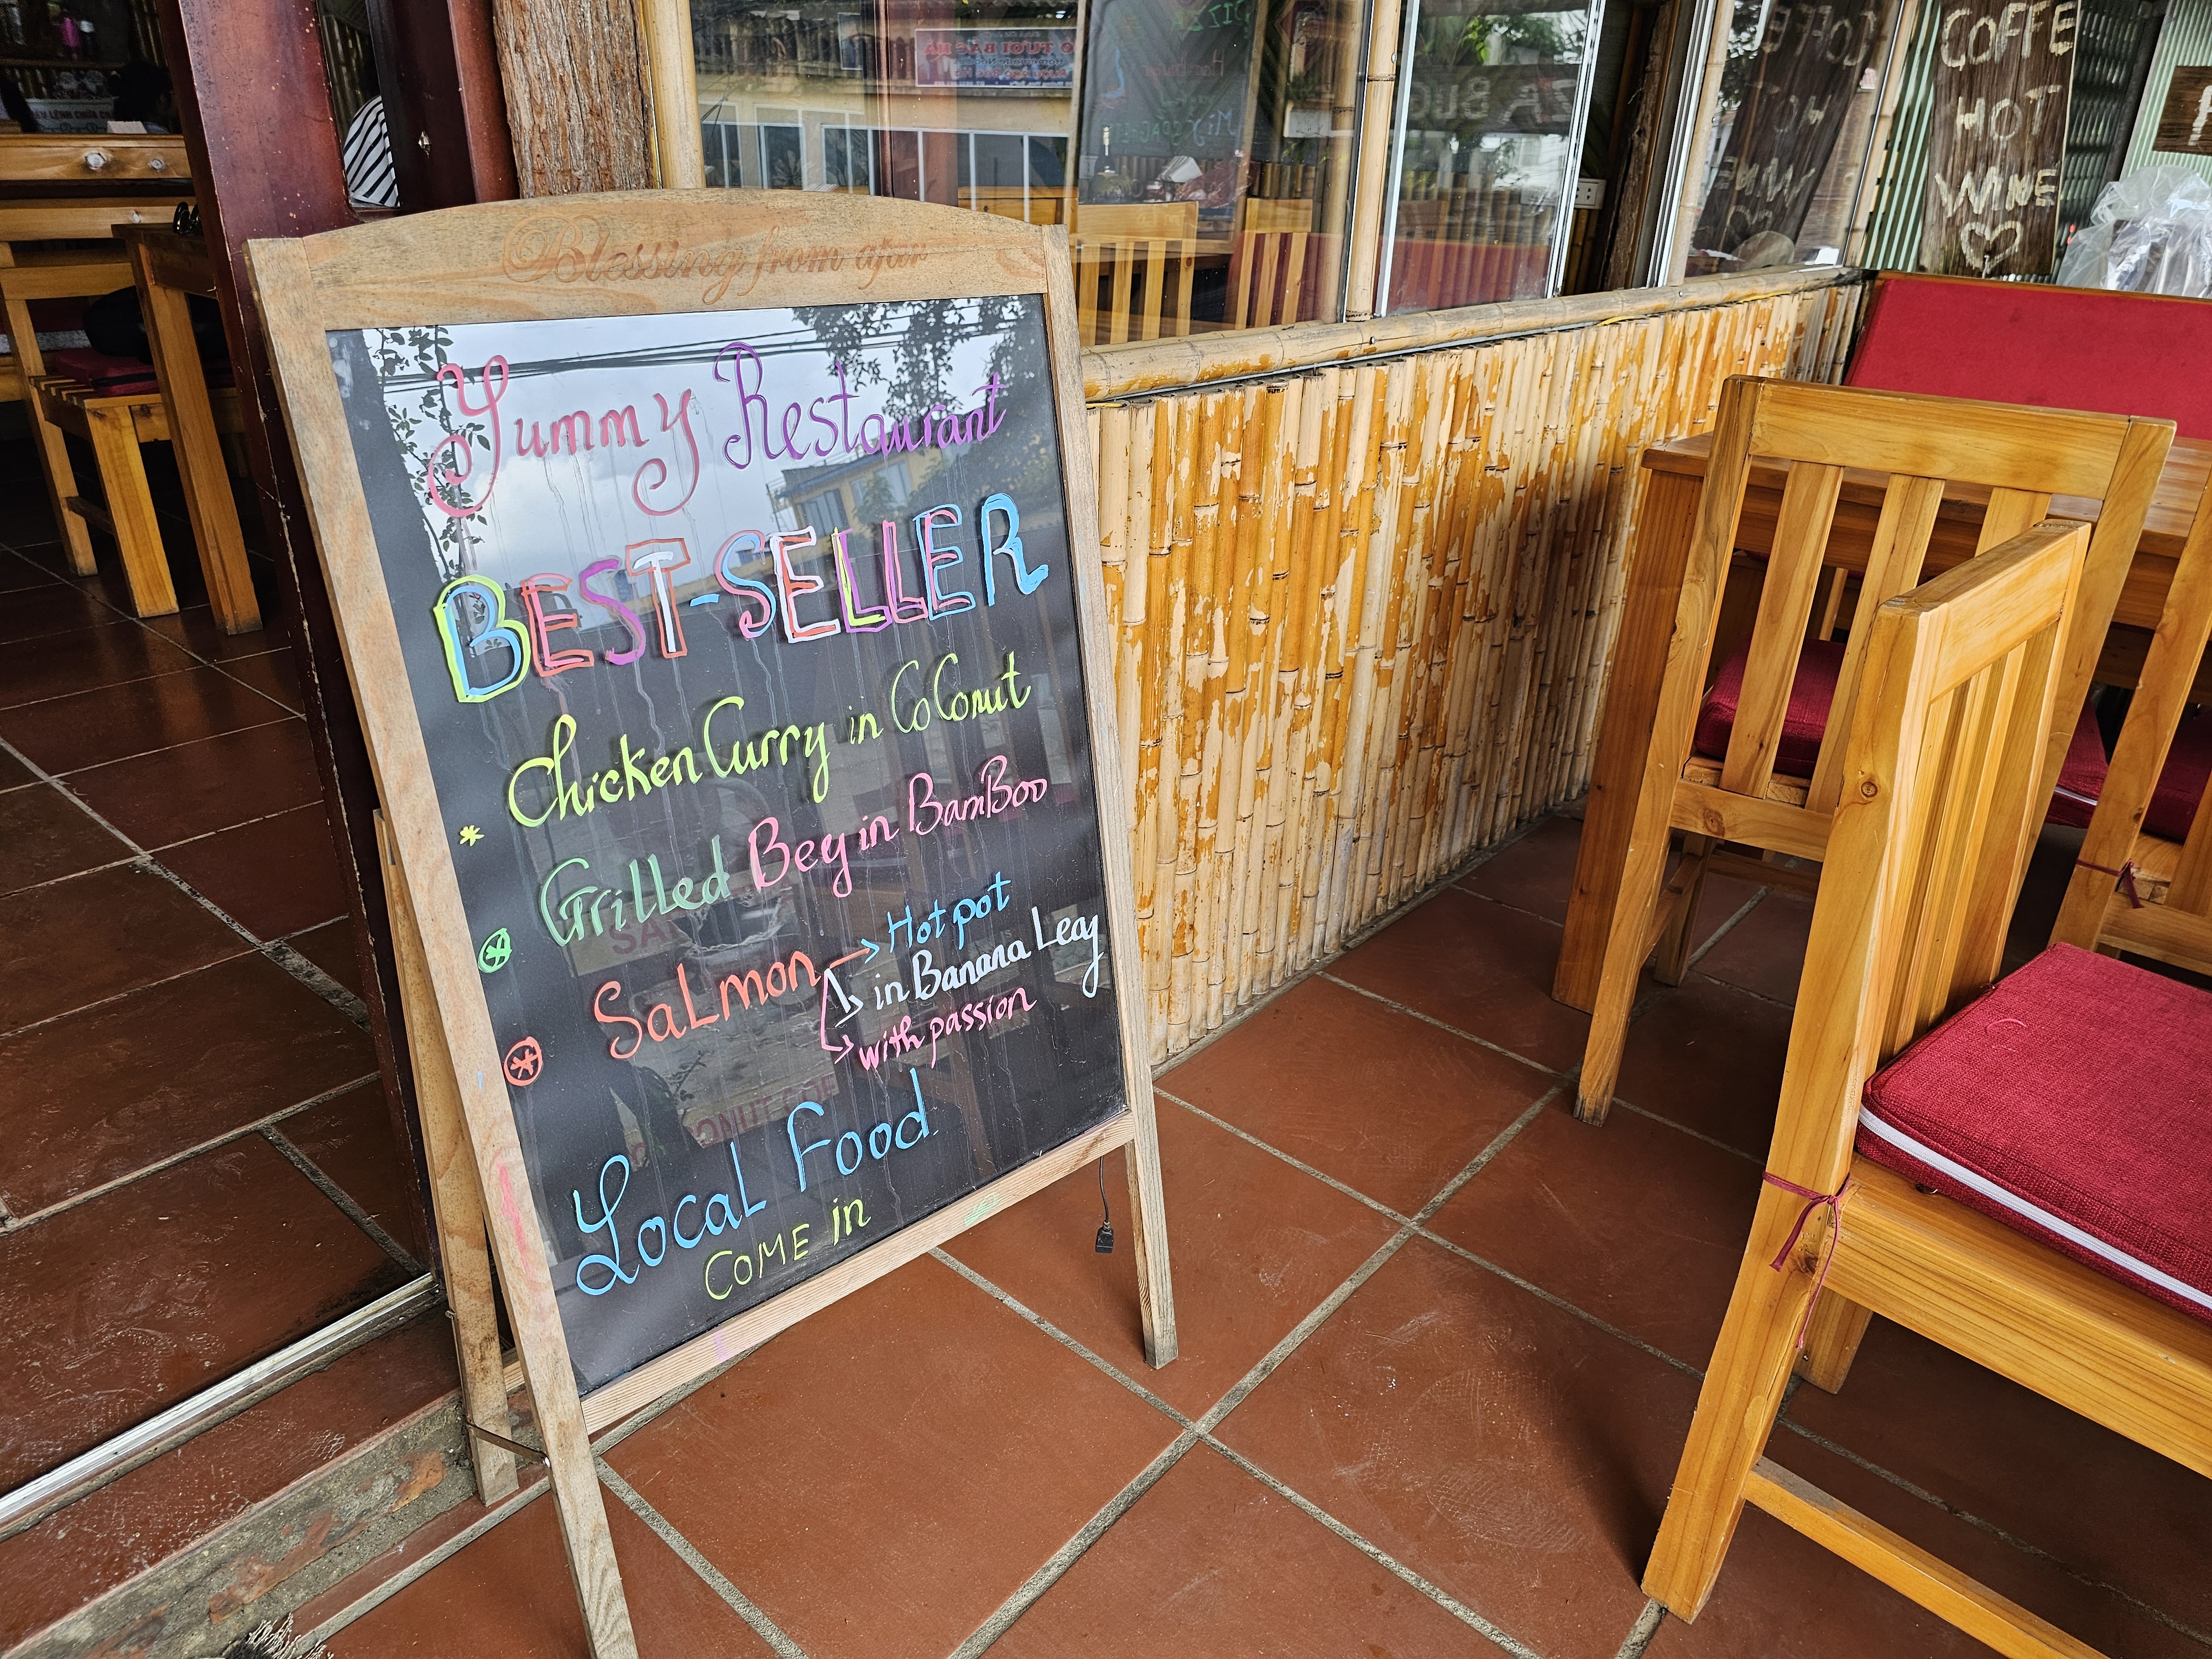 Blessing from afar
Yummy Restaurant
BEST-SELLER
* Chicken Curry in CoConut
* Grilled Beef in BamBoo
* Salmon → Hot pot
→ in Banana Leaf
→ with passion
Local Food
COME in
COFFE
HOT
WINE